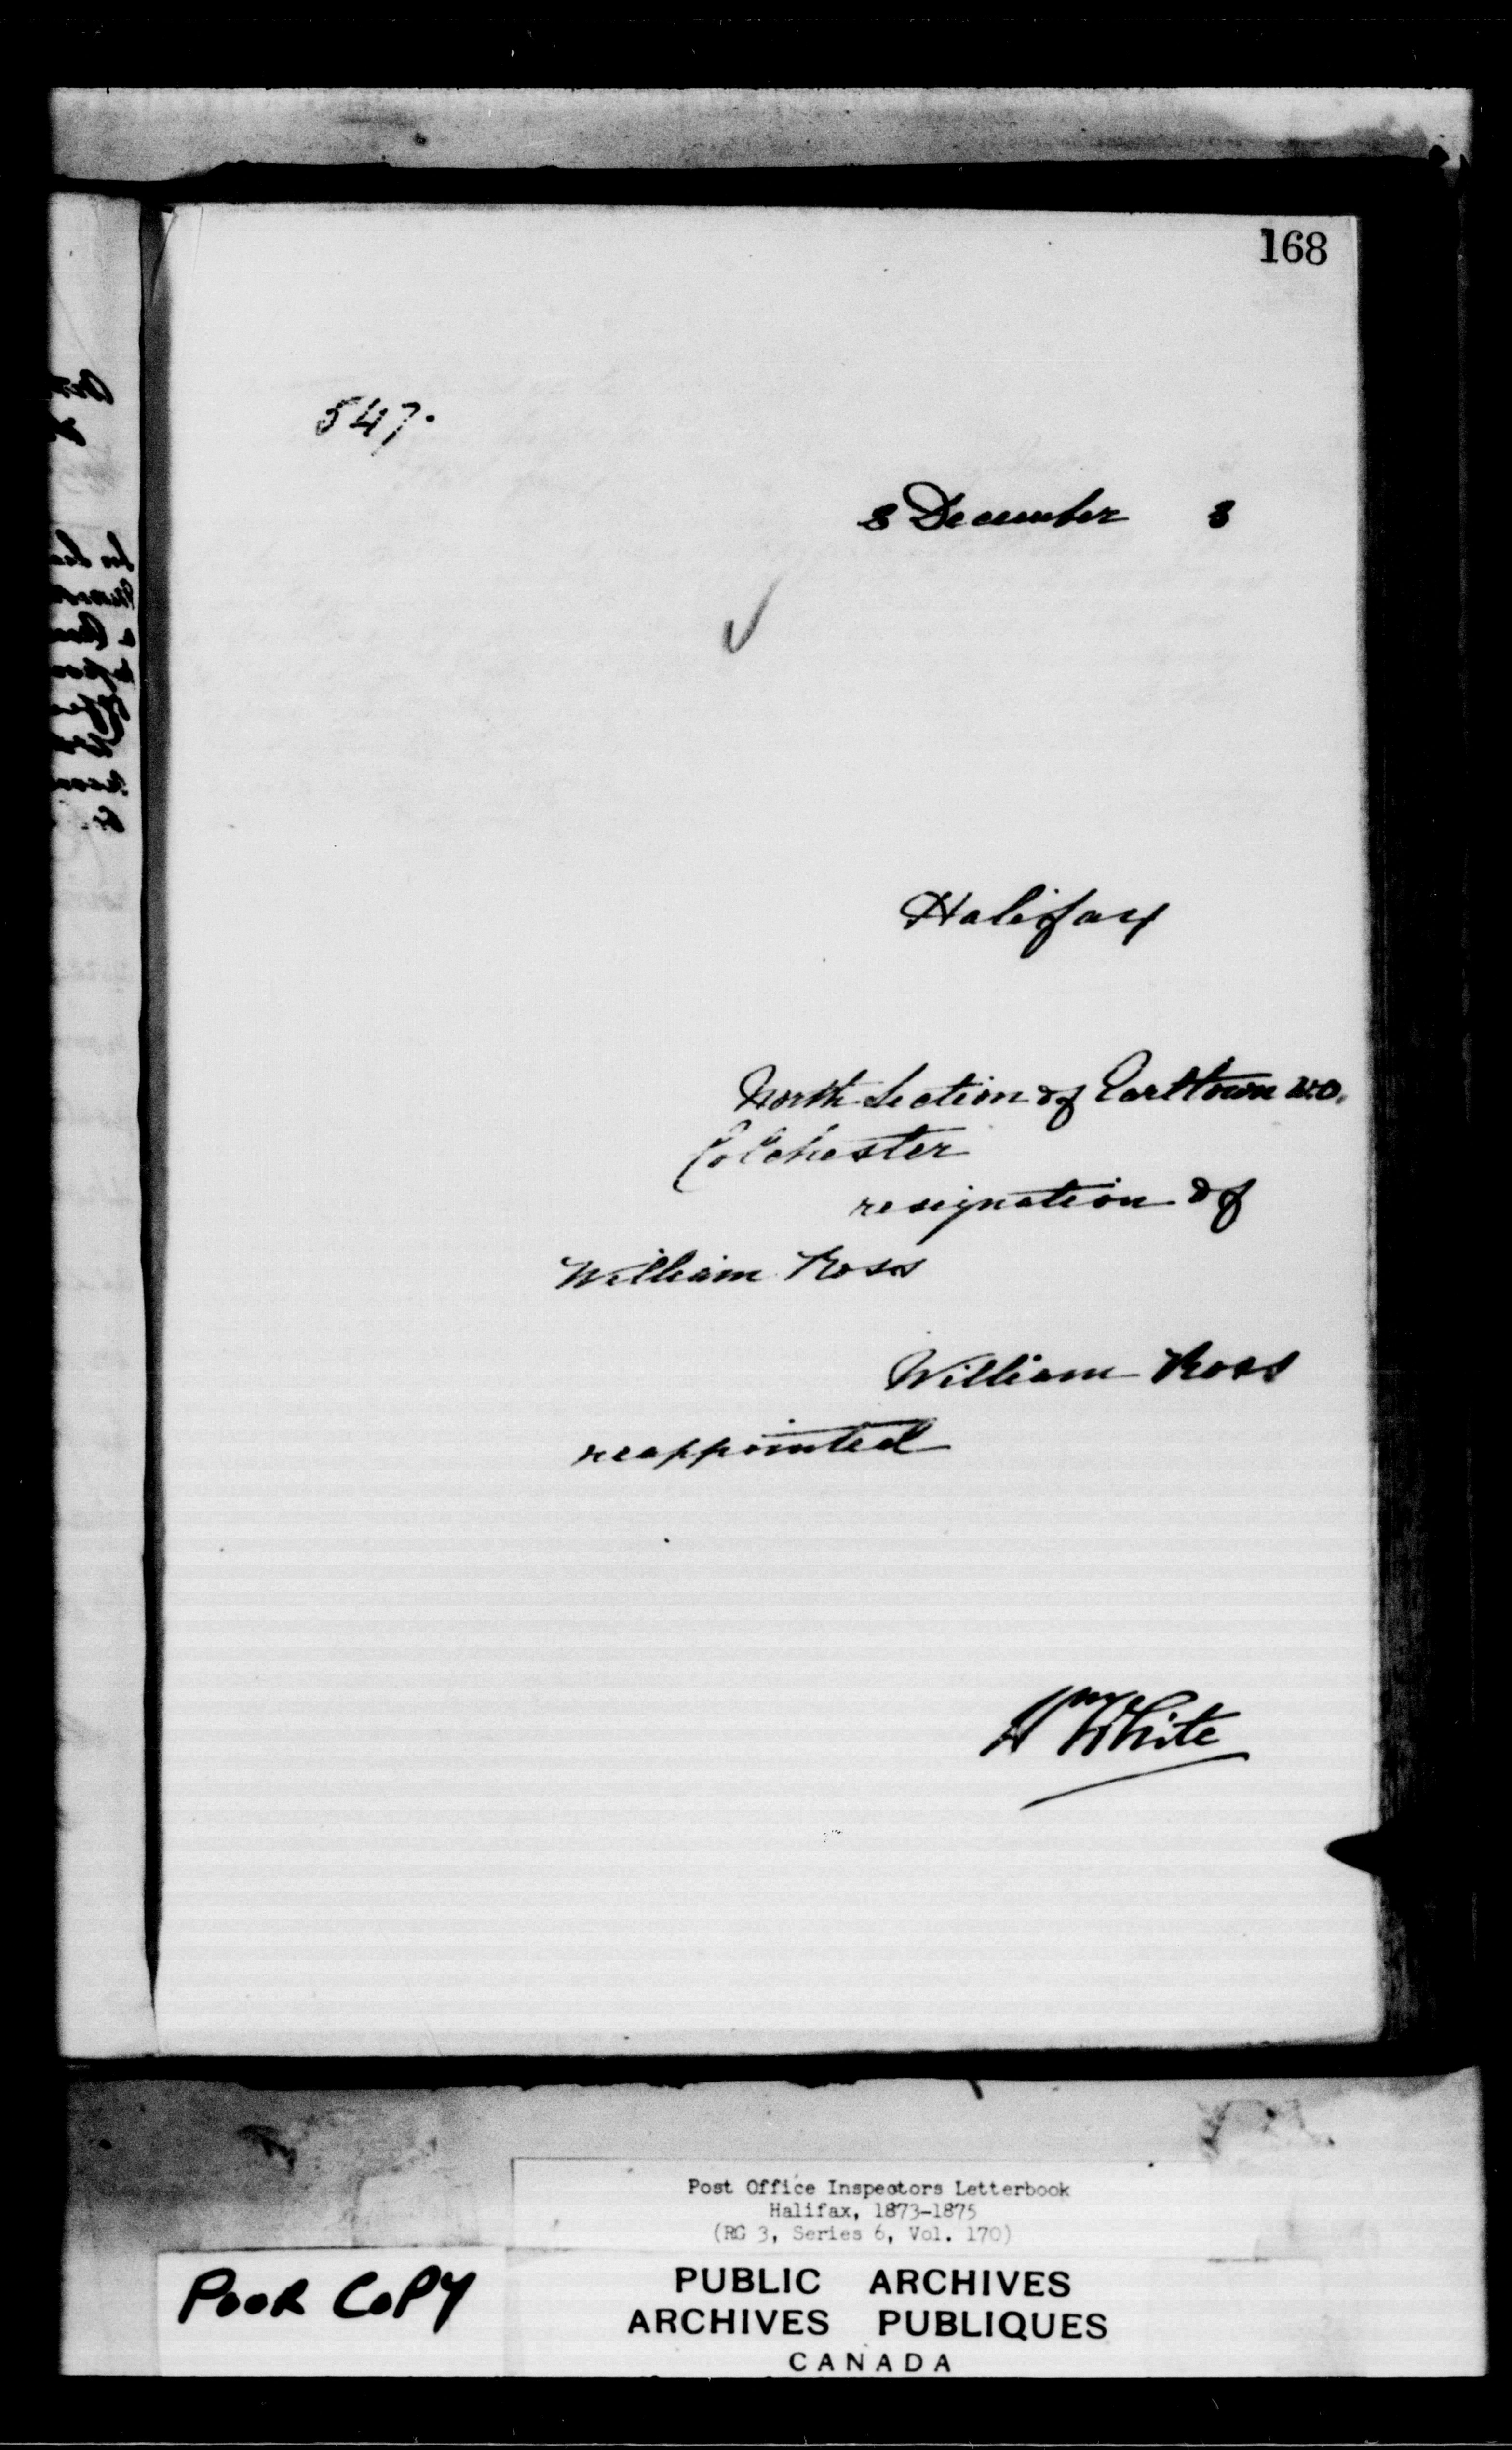 168
547.
8 December 3
Halifax
North Section of Earltown W.O.
Colchester
resignation of
William Ross
William Ross
reappointed
Wm White
Post Office Inspectors Letterbook
Halifax, 1873-1875
(RG 3, Series 6, Vol. 170)
POOR COPY
PUBLIC ARCHIVES
ARCHIVES PUBLIQUES
CANADA